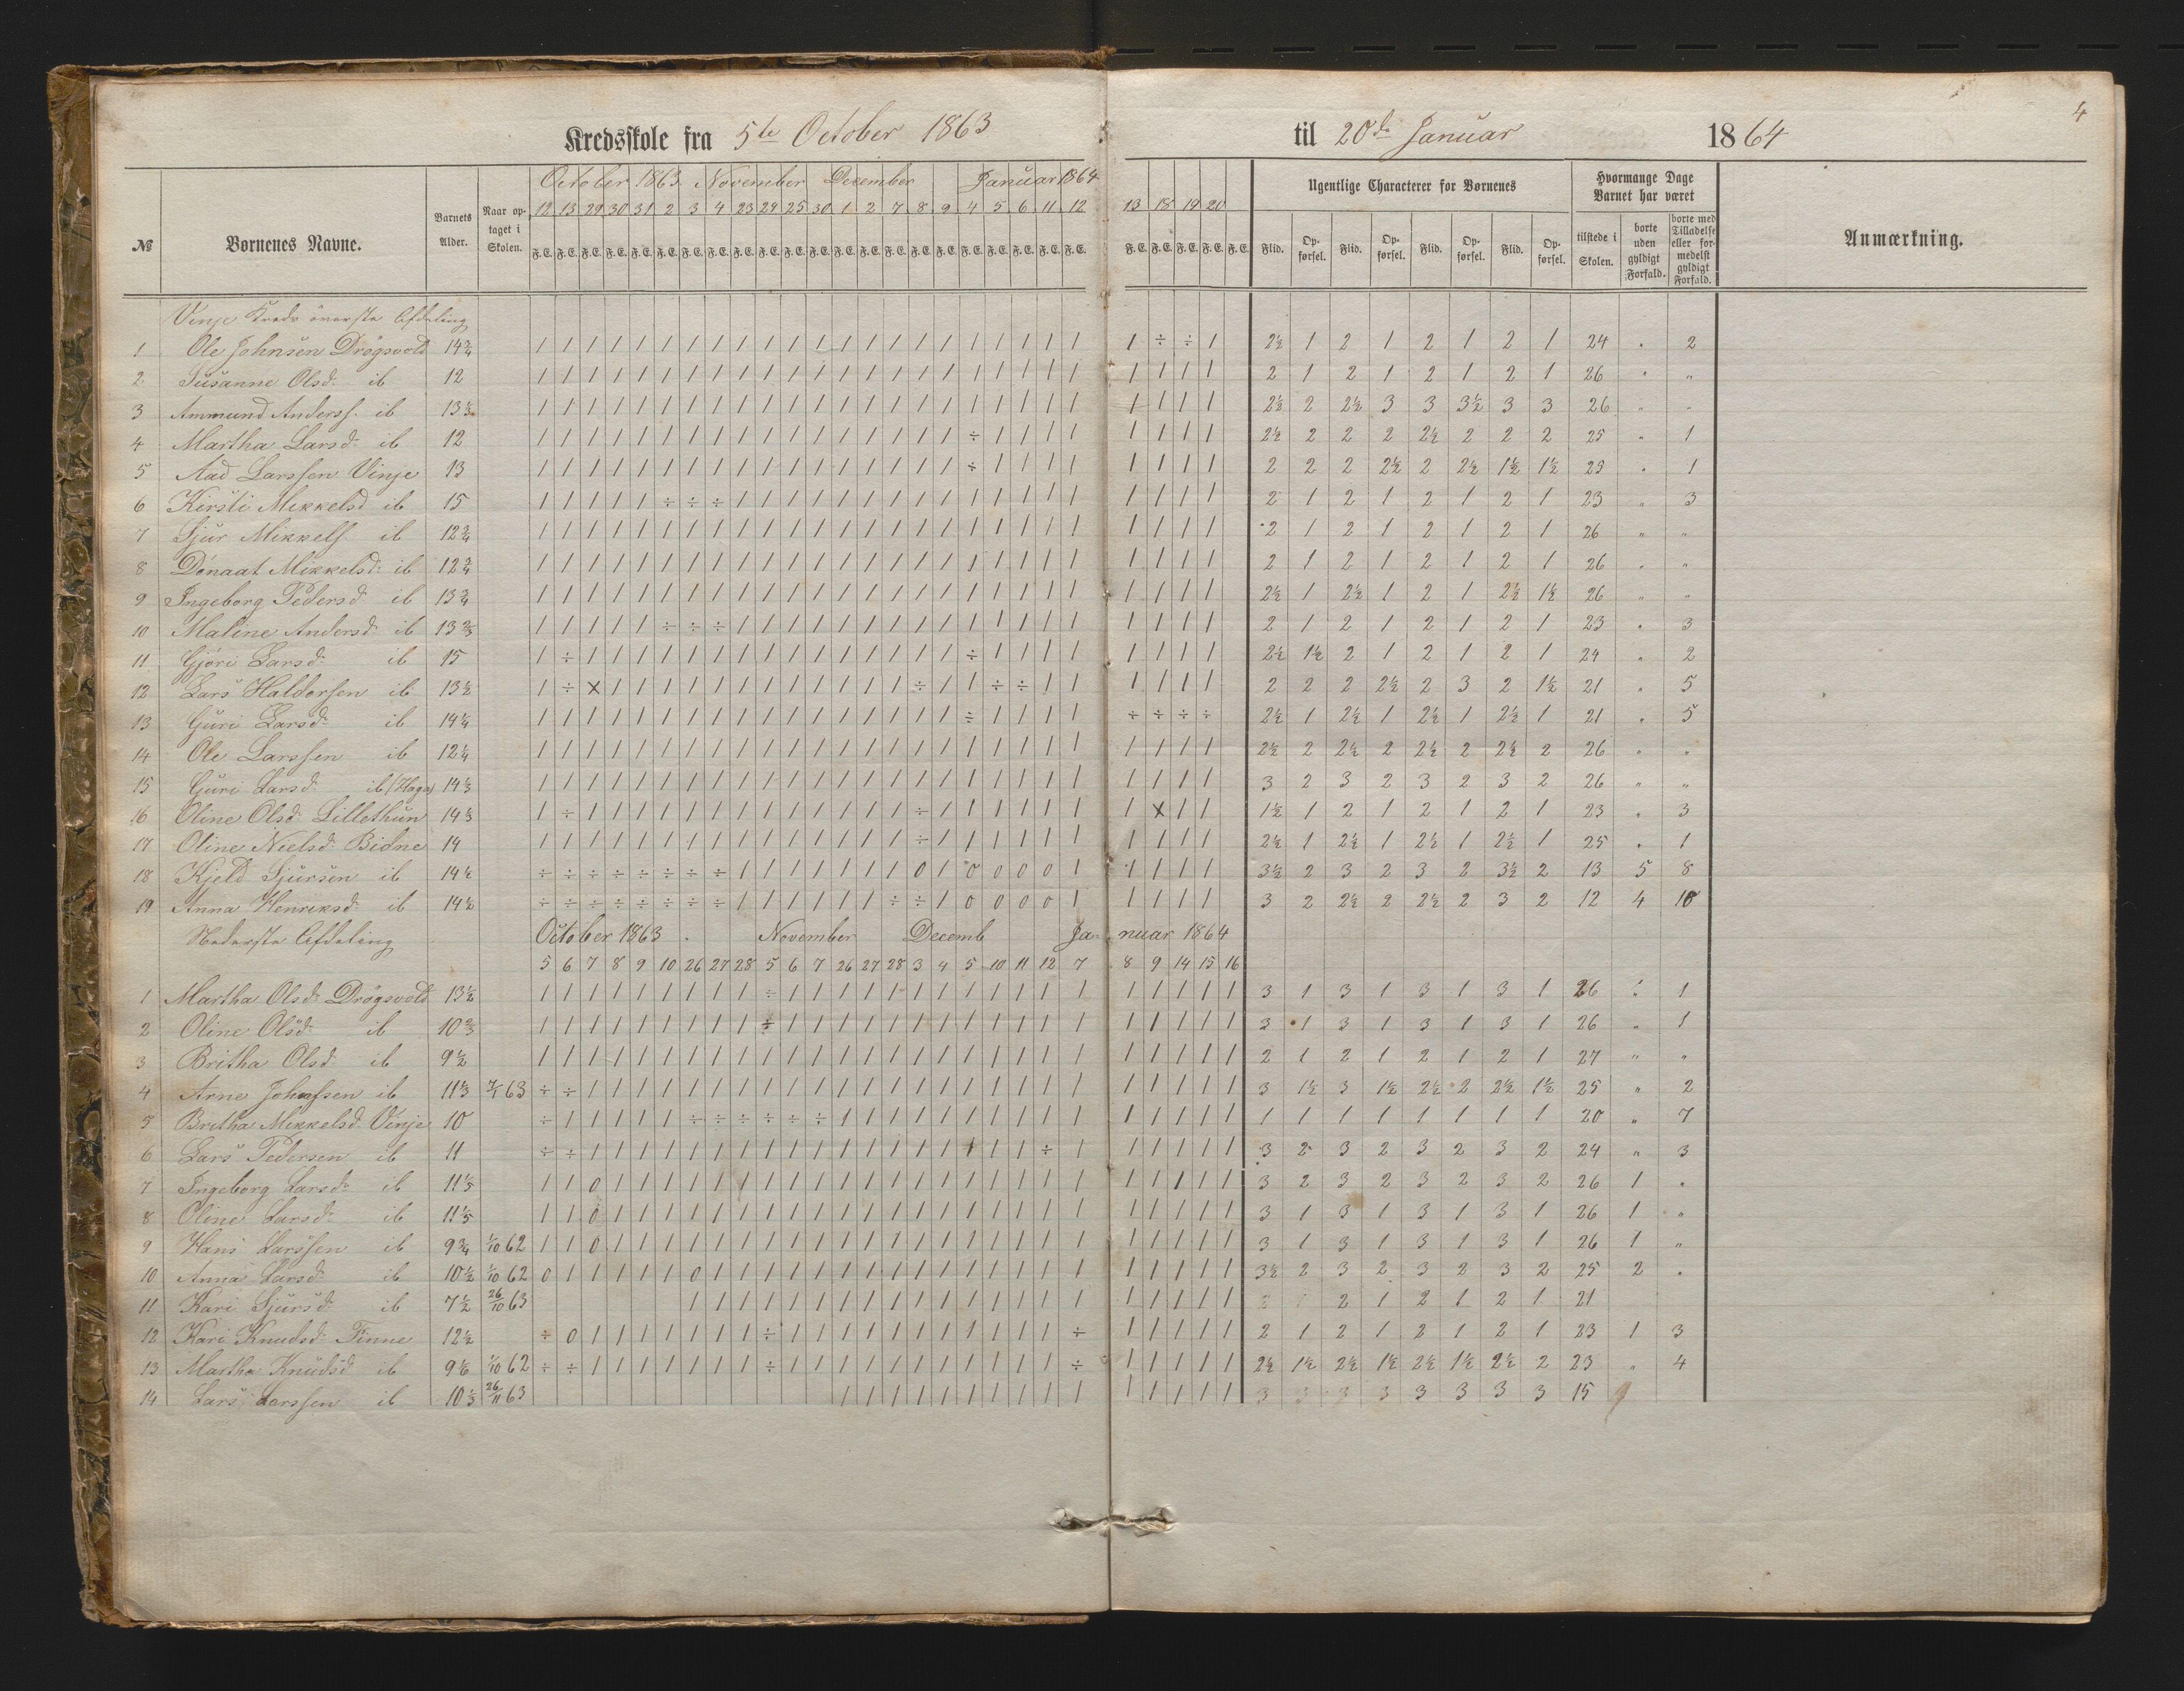 4
Kredsskole fra 5te October 1863 til 20de Januar 1864
October 1863 November December Januar 1864
12 13 29 30 31 2 3 4 23 24 25 30 1 2 7 8 9 4 5 6 11 12 13 18 19 20
№ Børnenes Navne. Barnets Alder. Naar optaget i Skolen. F.E. F.E. F.E. F.E. F.E. F.E. F.E. F.E. F.E. F.E. F.E. F.E. F.E. F.E. F.E. F.E. F.E. F.E. F.E. F.E. F.E. F.E. F.E. F.E. F.E. F.E. F.E.
Ugentlige Characterer for Børnenes Flid. Opførsel. Flid. Opførsel. Flid. Opførsel. Flid. Opførsel.
Hvormange Dage Barnet har været tilstede i Skolen. borte uden gyldigt Forfald. borte med Tilladelse eller formedelst gyldigt Forfald.
Anmærkning.
Vinje Kreds øverste Afdeling
1 Ole Johnsen Drøgsvold 14 3/4 / / / / / / / / / / / / / / / / / / / / / / / ÷ ÷ / 2½ 1 2 1 2 1 2 1 24 „ 2
2 Susanne Olsd: ib 12 / / / / / / / / / / / / / / / / / / / / / / / / / / 2 1 2 1 2 1 2 1 26 „ „
3 Ammund Anderss. ib 13 1/3 / / / / / / / / / / / / / / / / / / / / / / / / / / 2½ 2 2½ 3 3 3½ 3 3 26 „ „
4 Martha Larsd: ib 12 / / / / / / / / / / / / / / / / / ÷ / / / / / / / / 2½ 2 2 2 2½ 2 2 2 25 „ 1
5 Aad Larssen Vinje 13 / / / / / / / / / / / / / / / / / ÷ / / / / / / / / 2 2 2 2½ 2 2½ 1½ 1½ 25 „ 1
6 Kirsti Mikkelsd ib 15 / / / / / ÷ ÷ ÷ / / / / / / / / / / / / / / / / / / 2 1 2 1 2 1 2 1 23 „ 3
7 Sjur Mikkels. ib 12 3/4 / / / / / / / / / / / / / / / / / / / / / / / / / / 2 1 2 1 2 1 2 1 26 „ „
8 Donaat Mikkelsd: ib 12 3/4 / / / / / / / / / / / / / / / / / / / / / / / / / / 2 1 2 1 2 1 2 1 26 „ „
9 Ingeborg Pedersd ib 13 3/4 / / / / / / / / / / / / / / / / / / / / / / / / / / 2½ 1 2½ 1 2 1 2½ 1½ 26 „ „
10 Maline Andersd ib 13 2/3 / / / / / ÷ ÷ ÷ / / / / / / / / / / / / / / / / / / 2 1 2 1 2 1 2 1 23 „ 3
11 Gjøri Larsd: ib 15 / ÷ / / / / / / / / / / / / / / / ÷ / / / / / / / / 2½ 1½ 2 1 2 1 2 1 24 „ 2
12 Lars Haldorsen ib 13½ / ÷ X / / / / / / / / / / / / ÷ / / ÷ ÷ / / / / / / 2 2 2 2½ 2 3 2 1½ 21 „ 5
13 Guri Larsd: ib 14¼ / / / / / / / / / / / / / / / / / ÷ / / / / ÷ ÷ ÷ ÷ 2½ 1 2½ 1 2½ 1 2½ 1 21 „ 5
14 Ole Larssen ib 12¼ / / / / / / / / / / / / / / / / / / / / / / / / / / 2½ 2 2½ 2 2½ 2 2½ 2 26 „ „
15 Guri Larsd: ib (Haga) 14 1/3 / / / / / / / / / / / / / / / / / / / / / / / / / / 3 2 3 2 3 2 3 2 26 „ „
16 Oline Olsd Lillethun 14 1/3 / ÷ / / / / / / / / / / / / / ÷ / / / / / / / X / / 1½ 1 2 1 2 1 2 1 23 „ 3
17 Oline Nielsd Bidne 14 / / / / / / / / / / / / / / / ÷ / / / / / / / / / / 2½ 1 2½ 1 2½ 1 2½ 1 25 „ 1
18 Kjeld Sjursen ib 14½ ÷ ÷ ÷ ÷ ÷ ÷ ÷ ÷ / / / / / / / 0 / 0 0 0 0 / / / / / 3½ 2 3 2 3 2 3½ 2 13 5 8
19 Anna Henriksd: ib 14½ ÷ ÷ ÷ ÷ ÷ ÷ ÷ ÷ / / / / / / ÷ ÷ / 0 0 0 0 / / / / / 3 2 2½ 2 2½ 2 3 2 12 4 10
Nederste Afdeling October 1863. November Decemb Januar 1864
5 6 7 8 9 10 26 27 28 5 6 7 26 27 28 3 4 5 10 11 12 7 8 9 14 15 16
1 Martha Olsd: Drøgsvold 13½ / / / / / / / / / ÷ / / / / / / / / / / / / / / / / / 3 1 3 1 3 1 3 1 26 „ 1
2 Oline Olsd: ib 10 2/3 / / / / / / / / / ÷ / / / / / / / / / / / / / / / / / 3 1 3 1 3 1 3 1 26 „ 1
3 Britha Olsd ib 9½ / / / / / / / / / / / / / / / / / / / / / / / / / / / 2 1 2 1 2 1 2 1 27 „ „
4 Arne Johnssen ib 11 1/3 63 ÷ ÷ / / / / / / / / / / / / / / / / / / / / / / / / / 3 1½ 3 1½ 2½ 2 2½ 1½ 25 „ 2
5 Britha Mikkelsd. Vinje 10 ÷ / / / / / ÷ ÷ ÷ ÷ ÷ ÷ / / / / / / / / / / / / / / / 1 1 1 1 1 1 1 1 20 „ 7
6 Lars Pedersen ib 11 ÷ ÷ / / / / / / / / / / / / / / / / / / ÷ / / / / / / 3 2 3 2 3 2 3 2 24 „ 3
7 Ingeborg Larsd: ib 11 1/5 / / 0 / / / / / / / / / / / / / / / / / / / / / / / / 3 2 3 2 3 2 3 2 26 1 „
8 Oline Larsd: ib 11 1/5 / / 0 / / / / / / / / / / / / / / / / / / / / / / / / 3 1 3 1 3 1 3 1 26 1 „
9 Hans Larssen ib 9 3/4 1/10 62 / / 0 / / / / / / / / / / / / / / / / / / / / / / / / 3 1 3 1 3 1 3 1 26 1 „
10 Anna Larsd: ib 10½ 1/10 62 0 / / / / / 0 / / / / / / / / / / / / / / / / / / / / 3½ 2 3 2 3 2 3 2 25 2 „
11 Kari Sjursd: ib 7½ 26/10 63 / / / / / / / / / / / / / / / / / / / / / 2 1 2 1 2 1 21
12 Kari Knudsd. Finne 12½ ÷ 0 / / / / / / / ÷ / / / / / / / / / / / ÷ / / / / / 2 1 2 1 2 1 2 1 23 1 3
13 Martha Knudsd ib 9 1/6 1/10 62 ÷ ÷ / / / / / / / ÷ / / / / / / / / / / / ÷ / / / / / 2½ 1½ 2½ 1½ 2½ 1½ 2½ 2 23 „ 4
14 Lars Larssen ib 10 1/3 26/11 63 / / / / / / / / / / / / / / / 3 3 3 3 3 3 3 3 15